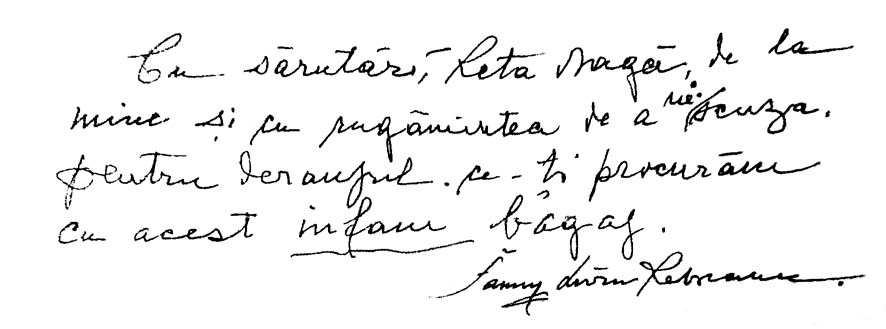 Cu sărutări, Reta dragă, de la
mine și cu rugămintea de a ne scuza.
pentru deranjul. ce-ți procurăm
cu acest infam bagaj.
Fanny Liviu Rebreanu.